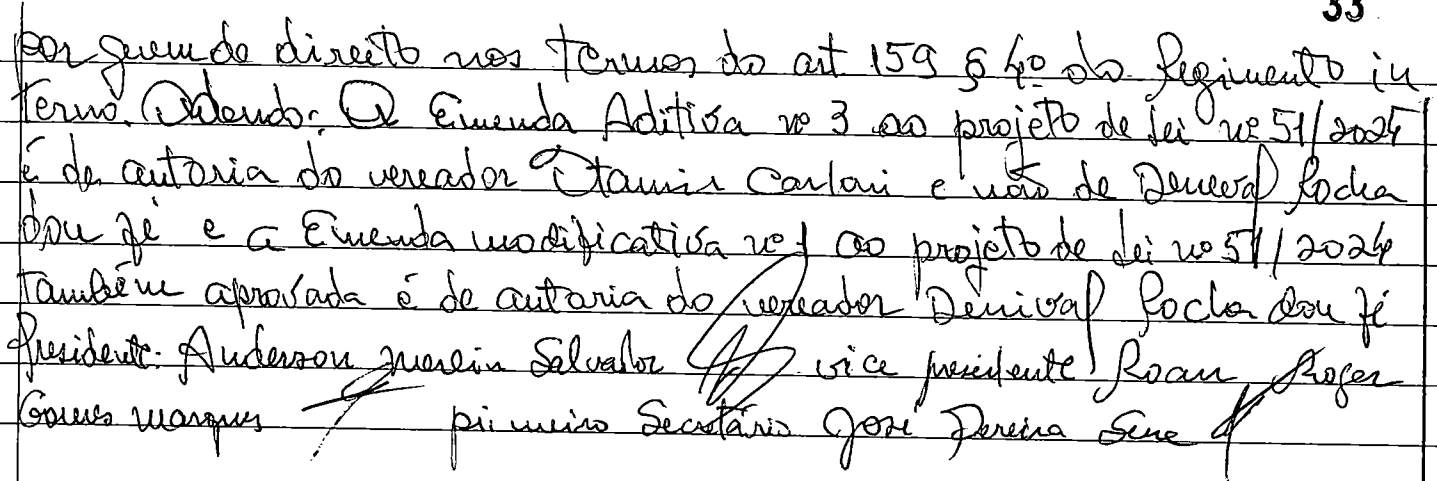 33
por quem de direito nos termos do art 159 § 4º do Regimento in
terno. Adendo: A Emenda Aditiva nº 3 ao projeto de lei nº 51/2024
é de autoria do vereador Otamir Carloni e não de Deneval Rocha
dou fé e a Emenda modificativa nº 1 ao projeto de lei nº 51/2024
também aprovada é de autoria do vereador Denival Rocha dou fé
Presidente: Anderson Merlin Salvador vice presidente Roan Roger
Gomes marques primeiro Secretário José Pereira Sene